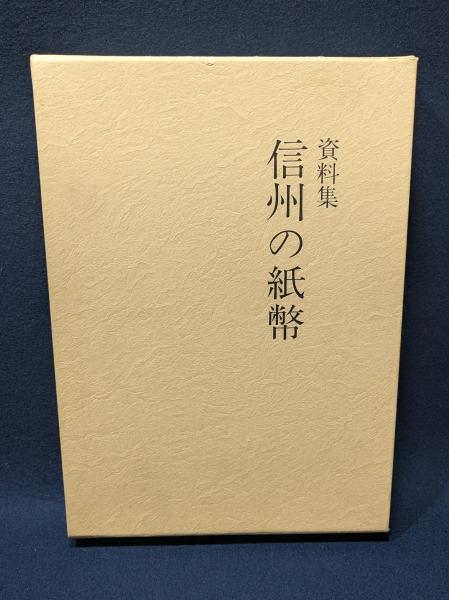 資料集
信州の紙幣